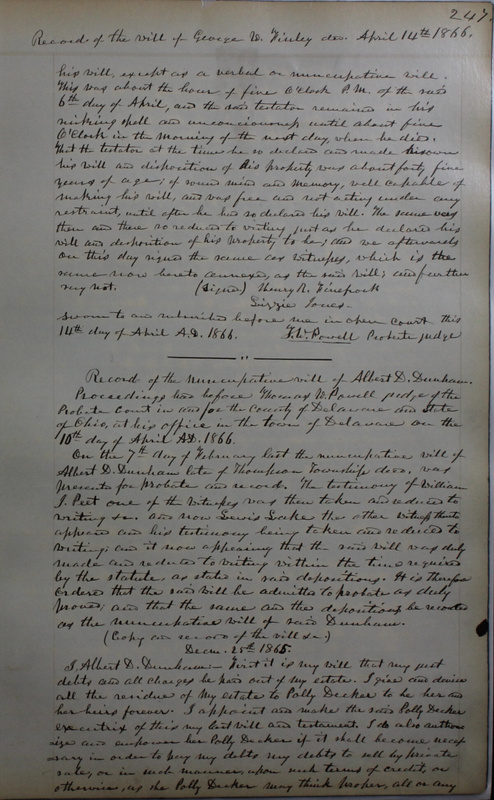 247
Record of the will of George W. Finley dec. April 14th 1866.
his will, except as a verbal or nuncupative will.
This was about the hour of five O'Clock P.M. of the said
6th day of April, and the said testator remained in his
sinking spell and unconciousness until about five
O'Clock in the morning of the next day, when he died.
That the testator at the time he so declared and made his own
his will and disposition of his property was about forty five
years of age; of sound mind and memory, well capable of
making his will, and was free and not acting under any
restraint, until after he had so declared his will. The same was
then and there so reduced to writing just as he declared his
will and disposition of his property to be; and we afterwards
on this day signed the same as witnesses, which is the
same now hereto annexed, as the said will; and further
say not. (Signed) Henry R.
Lizzie Jones
sworn to and subscribed before me in open court this
14th day of April A.D. 1866. T.W. Powell Probate Judge
Record of the nuncupative will of Albert D. Dunham.
Proceedings had before Thomas W. Powell judge of the
Probate Court in and for the County of Delaware and State
of Ohio, at his office in the town of Delaware on the
10th day of April AD. 1866.
On the 7th day of February last the nuncupative will of
Albert D. Dunham late of Thompson Township decd. was
presented for probate and record. The testimony of William
J. Peet one of the witnesses was then taken and reduced to
writing &c. and now Lewis Lake the other witness thereto
appeared and his testimony being taken and reduced to
writing; and it now appearing that the said will was duly
made and reduced to writing within the time required
by the statute as stated in said depositions. It is therefore
ordered that the said will be admitted to probate as duly
proved; and that the same and the depositions be recorded
as the nuncupative will of said Dunham.
(Copy and record of the will &c.)
Decm. 25th 1865.
I, Albert D. Dunham— First it is my will that my just
debts and all charges be paid out of my estate. I give and devise
all the residue of my estate to Polly Decker to be her and
her heirs forever. I appoint and make the said Polly Decker
executrix of this my last will and testament. I do also author
ize and empower her Polly Decker if it shall become neces
sary in order to pay my debts my debts to sell by private
sale, or in such manner, upon such terms of credit, or
otherwise, as she Polly Decker may think proper, all or any